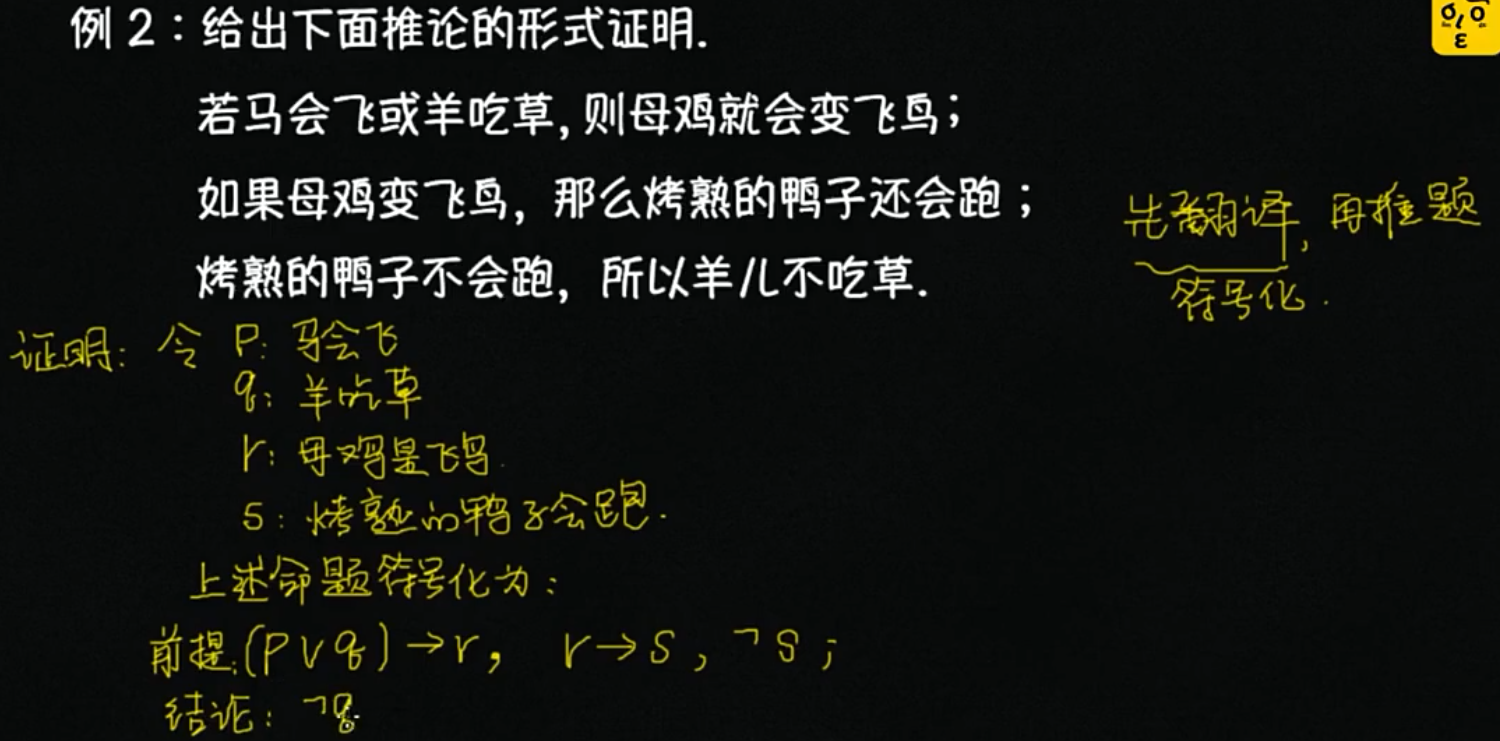 例 2：给出下面推论的形式证明.
若马会飞或羊吃草，则母鸡就会变飞鸟；
如果母鸡变飞鸟，那么烤熟的鸭子还会跑；
烤熟的鸭子不会跑，所以羊儿不吃草.
先翻译，再推题
符号化.
证明：令 P：马会飞
q：羊吃草
r：母鸡是飞鸟.
s：烤熟的鸭子会跑.
上述命题符号化为：
前提：(p∨q)→r，r→s，¬s；
结论：¬q